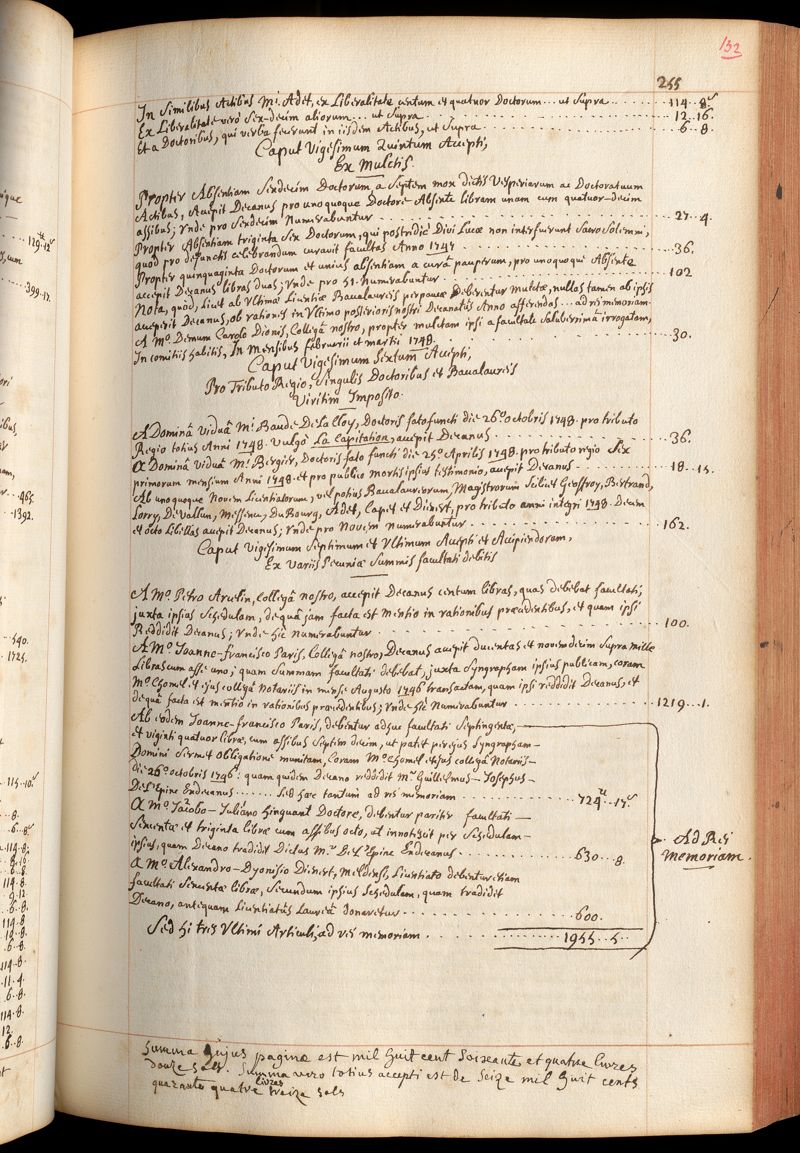 132
255
In Similibus Actibus Mi. Adet, ex Liberalitate centum et quatuor Doctorum... ut Supra ... 114..8s
Ex Liberalitate verò Sex-decim aliorum... ut Supra ... 12..16.
Et a Doctoribus, qui verba fecerunt in iisdem Actibus, ut Supra ... 6..8.
Caput Vigesimum Quintum Accepti,
Ex Mulctis.
Propter Absentiam Sexdecim Doctorum, a Septem mox dictis Vesperiarum ac Doctoratuum
Actibus, Accepit Decanus pro unoquoque Doctore Absente libram unam cum quatuor-decim
assibus; Unde pro Sexdecim Numerabuntur ... 27..4.
Propter Absentiam triginta Sex Doctorum, qui postridiè Divi Lucae non interfuerunt Sacro Solemni,
quod pro defunctis celebrandum curavit facultas Anno 1747 ... 36.
Propter quinquaginta Doctorum et unius absentiam a curâ pauperum, pro unoquoque Absente
accepit Decanus libras duas; Unde pro 51. Numerabuntur ... 102
Nota, quòd, licet ab Ultimae Licentiae Baccalaureis perpaucae Deberentur mulctae, nullas tamen ab ipsis
acceperit Decanus, ob rationes in Ultimo posterioris nostri Decanatûs Anno afferendas... ad rei memoriam.
A Mo. Demum Carolo Dionis, Collegâ nostro, propter mulctam ipsi a facultate Saluberrimâ irrogatam,
In comitiis habitis, In Mensibus februarii et martii 1748. ... 30.
Caput Vigesimum Sextum Accepti,
Pro Tributo Regio, Singulis Doctoribus et Baccalaureis
Viritim Imposito.
A Dominâ viduâ Mi. Baude De La Cloy, Doctoris fato functi die 26o. octobris 1748. pro tributo
Regio totius Anni 1748. vulgo La Capitation, accepit Decanus ... 36.
A Dominâ viduâ Mi. Bergier, Doctoris fato functi die 25o. Aprilis 1748. pro tributo regio Sex
primorum mensium Anni 1748. et pro publico mortis ipsius testimonio, accepit Decanus ... 18..15.
Ab unoquoque Novem Licentiatorum, vel potius Baccalaureorum, Magistrorum Scilicet Geoffroy, Bertrand,
Lorry, Devallun, Messenc, DuBourg, Adet, Capet et Dienert, pro tributo anni integri 1748. Decem
et octo Libellas accepit Decanus; Unde pro Novem numerabuntur ... 162.
Caput Vigesimum Septimum et Ultimum Accepti et Accipiendorum,
Ex Variis Pecuniae Summis facultati debitis
A Mo. Petro Arcelin, Collegâ nostro, accepit Decanus centum libras, quas debebat facultati;
juxta ipsius Schedulam, de quâ jam facta est mentio in rationibus praecedentibus, et quam ipsi
Reddidit Decanus; Unde hîc numerabuntur ... 100.
A Mo. Joanne-Francisco Paris, Collegâ nostro, Decanus accepit ducentas et novemdecim Supra mille
Libras cum asse uno; quam Summam facultati debebat, juxta Syngrapham ipsius publicam, coram
Mo. Chomel et ejus collegâ Notariis in mense Augusto 1746 transactam, quam ipsi reddidit Decanus, et
de quâ facta est mentio in rationibus praecedentibus; Unde hîc Numerabuntur ... 1219..1.
Ab eodem Joanne-Francisco Paris, debentur adhuc facultati Septingentae,
et viginti quatuor librae, cum assibus Septem decim, ut patet per ejus Syngrapham
Domini Sermet obligatione munitam, Coram Mo. Chomel et ejus collegâ Notariis
die 26o. octobris 1746: quam quidem Decano reddidit Mr. Guillelmus-Josephus
De L'Epine Exdecanus ...... Sed haec tantum ad rei memoriam ... 724tt..17s
A Mo. Jacobo-Juliano hinguant Doctore, debentur pariter facultati
Sexcentae et triginta librae cum assibus octo, ut innotescit per Schedulam
ipsius, quam Decano tradidit Dictus Mr. De L'Epine Exdecanus ... 630..8.
A Mo. Alexandro-Dyonisio Dienert, Meldensi, Licentiato debentur etiam
facultati Sexcentae librae, Secundum ipsius Schedulam, quam tradidit
Decano, antequam Licentiatûs Laureâ donaretur ... 600.
Sed hi tres Ultimi Articuli, ad rei memoriam ... 1955..5.
Ad Rei
Memoriam.
Summa hujus paginae est mil huit cent Soixante et quatre livres
douze Sols. Summa vero totius accepti est de Seize mil huit cents
quarante quatre livres treize sols